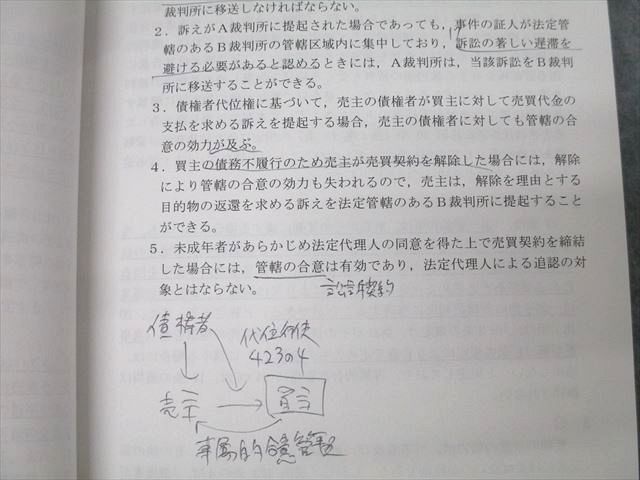 裁判所に移送しなければならない。
２．訴えがＡ裁判所に提起された場合であっても，事件の証人が法定管
轄のあるＢ裁判所の管轄区域内に集中しており，訴訟の著しい遅滞を
避ける必要があると認めるときには，Ａ裁判所は，当該訴訟をＢ裁判
所に移送することができる。
３．債権者代位権に基づいて，売主の債権者が買主に対して売買代金の
支払を求める訴えを提起する場合，売主の債権者に対しても管轄の合
意の効力が及ぶ。
４．買主の債務不履行のため売主が売買契約を解除した場合には，解除
により管轄の合意の効力も失われるので，売主は，解除を理由とする
目的物の返還を求める訴えを法定管轄のあるＢ裁判所に提起すること
ができる。
５．未成年者があらかじめ法定代理人の同意を得た上で売買契約を締結
した場合には，管轄の合意は有効であり，法定代理人による追認の対
象とはならない。
訴訟契約
債権者
代位行使
423の4
売主
買主
専属的合意管轄